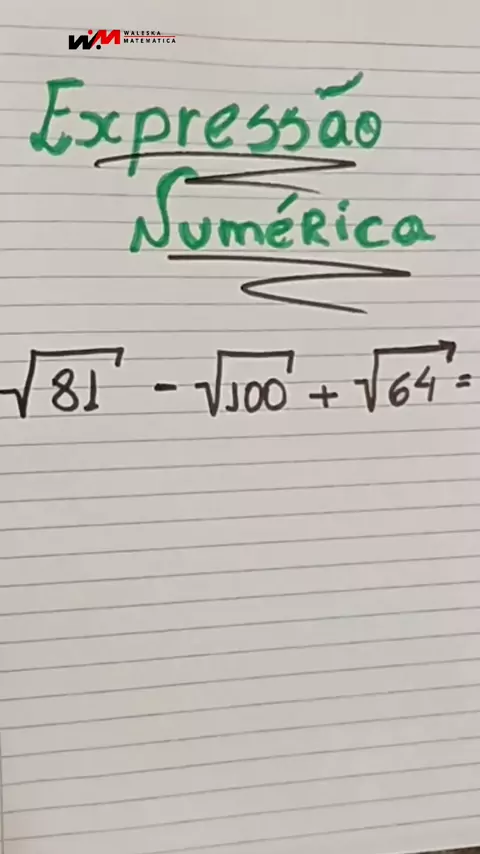 WM WALESKA
MATEMATICA
Expressão
Numérica
√81 - √100 + √64 =